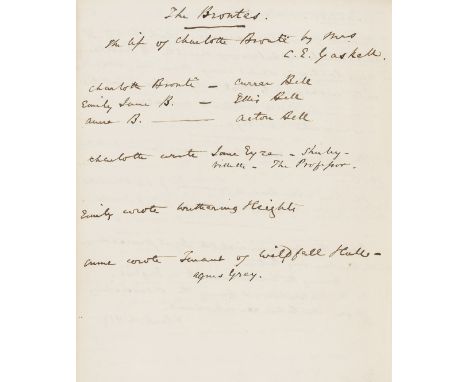 The Brontes.
The life of Charlotte Brontë by Mrs
C. E. Gaskell.
Charlotte Brontë – Currer Bell
Emily Jane B. – Ellis Bell
Anne B. — Acton Bell
Charlotte wrote Jane Eyre – Shirley –
Villette – The Professor.
Emily wrote Wuthering Heights
Anne wrote Tenant of Wildfell Hall –
Agnes Grey.